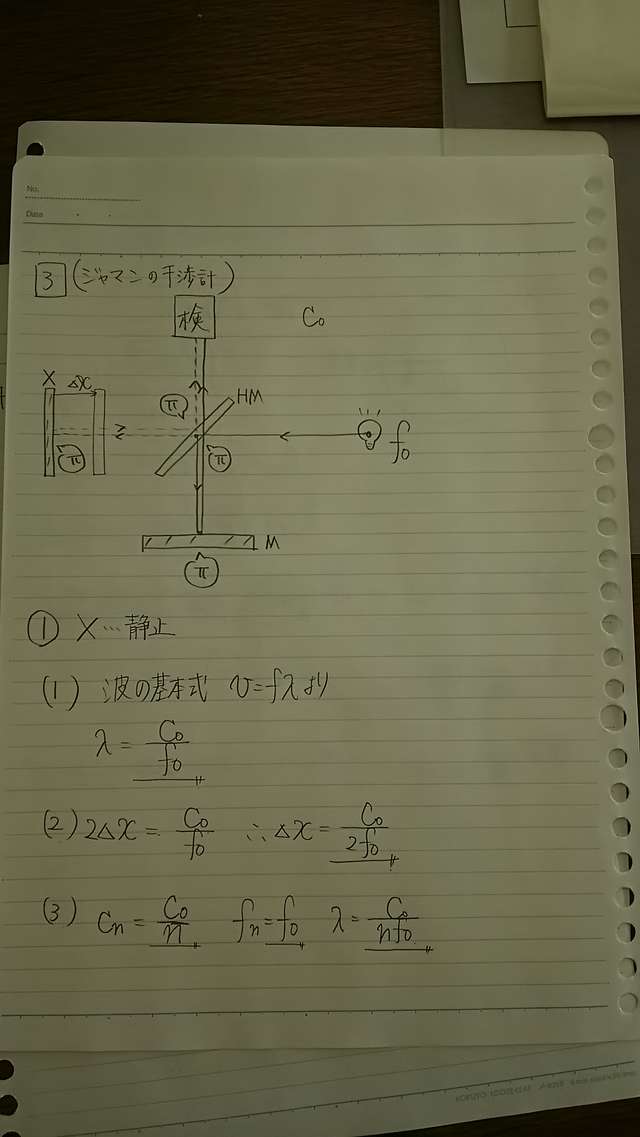 No.
Date
3 (ジャマンの干渉計)
検
C₀
X
Δx
HM
π
π
π
f₀
M
π
① X…静止
(1) 波の基本式 v=fλより
λ = C₀/f₀
(2) 2Δx = C₀/f₀ ∴Δx = C₀/2f₀
(3) Cn = C₀/n fn = f₀ λ = C₀/nf₀